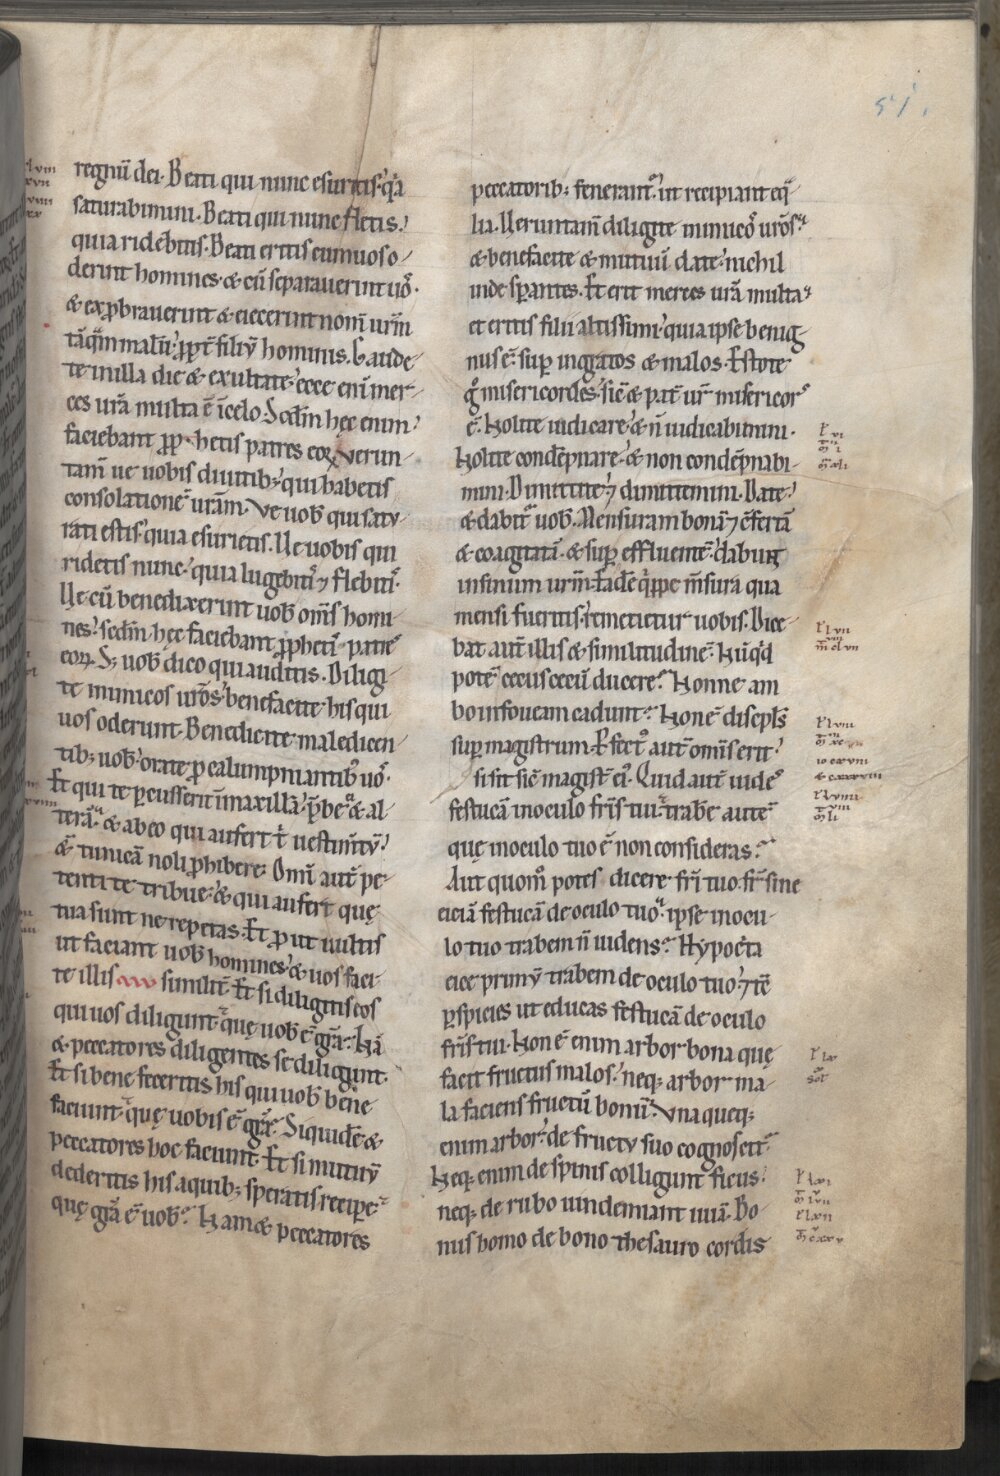 51.
regnū dei. Beati qui nunc esuritis. q̄a
saturabimini. Beati qui nunc fletis.
quia ridebitis. Beati eritis cum uos o
derint homines. & cū separauerint uos.
& exp̄brauerint & eiecerint nom̄ ur̄m
tāq̄m malū. p̄pt̄ filiū hominis. Gaude
te in illa die & exultate. ecce eni mer
ces ur̄a multa ē ī celo. Scdm̄ hęc enim
faciebant p̄phetis patres eoꝝ. Verun
tam̄ ue uobis diuitib; qui habetis
consolationē uram̄. Ve uob̄ qui satu
rati estis. quia esurietis. Ue uobis qui
ridetis nunc. quia lugebitis ⁊ flebitis.
Ue cū benedixerint uob̄ om̄s homi
nes. scdm̄ hęc faciebant p̄phetis patres
eoꝝ. S; uob̄ dico qui auditis. Diligi
te inimicos uros. benefacite his qui
uos oderunt. Benedicite maledicen
tib; uob̄. orate p̄ calumpniantib; uos.
Et qui te percusserit ī maxillā. p̄be & al
terā. & ab eo qui aufert t' uestimtū.
& tunicā noli p̄hibere. Omī aut̄ pe
tenti te tribue. & qui aufert quę
tua sunt ne repetas. Et p̄ ut uultis
ut faciant uob̄ homines. & uos faci
te illis similit̄. Et si diligitis eos
qui uos diligunt. quę uob̄ ē grā. Nā
& peccatores diligentes se diligunt.
Et si bene feceritis his qui uob̄ bene
faciunt. quę uobis ē grā. Siquidē &
peccatores hoc faciunt. Et si mutuū
dederitis his a quib; speratis recipe
quę grā ē uob̄. Nam & peccatores
peccatorib; fenerant̄. ut recipiant eq̄
lia. Ueruntam̄ diligite inimicos uros.
& benefacite & mutuū date. nichil
inde sperantes. Et erit merces urā multa.
et eritis filii altissimi. quia ipse benig
nus ē. sup̄ ingratos & malos. Estote
g̊ misericordes. sic & pat̄ ur̄ misericors
ē. Nolite iudicare. & n̄ iudicabimini.
Nolite condēpnare. & non condēpnabi
mini. Dimittite. ⁊ dimittemini. Date.
& dabit̄ uob̄. Mensuram bonā ⁊ cōfertā
& coagitatā. & sup̄ effluentē. dabunt
in sinum ur̄m. Eadē q̄ppe m̄sura qua
mensi fueritis. remetietur uobis. Dice
bat aut̄ illis & similitudinē. Nūq̄d
potest cecus cecū ducere. Nonne am
bo in foueam cadunt. Non ē discipls̄
sup̄ magistrum. P̄fect̄ aut̄ omnis erit.
si sit sic magist̄ ei. Quid aut̄ uides
festucā in oculo fr̄is tui. trabē autē
quę in oculo tuo ē non consideras.
Aut quom̊ potes dicere fr̄i tuo. fr̄ sine
eiciā festucā de oculo tuo. ipse in ocu
lo tuo trabem n̄ uidens. Hypocrita
eice primū trabem de oculo tuo. ⁊ tc̄
p̄spicies ut educas festucā de oculo
fr̄is tui. Non ē enim arbor bona quę
facit fructus malos. neq; arbor ma
la faciens fructū bonū. Vna queq;
enim arbor. de fructu suo cognoscit̄.
Neq; enim de spinis colligunt ficus.
neq; de rubo uindemiant uuā. Bo
nus homo de bono thesauro cordis